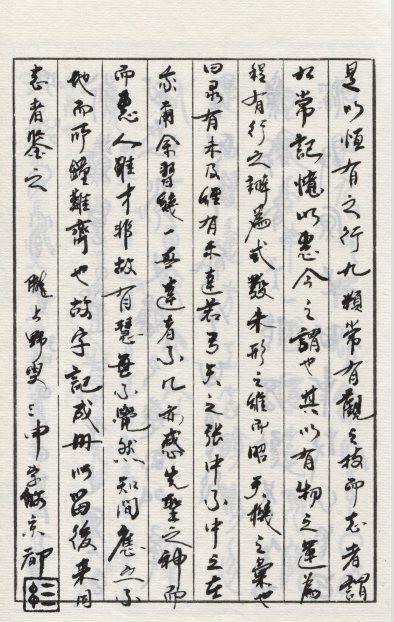 是以恒有之行九類常有觀之枝而志者謂
如常記憶以惠今之謂也其以有物之運為
程有行之辭為式數未形之維而昭天機之彙也
曰彔有未及經有未達若弓矢之張中不中之在
亦爾余習幾一無達者不几亦感先聖之神而
而惠人雖才非故有慧每不覺然知問應之不
地而所鐘難齊也故字記成冊以留後來同
志者鑒之
隴上野叟三中字於京都